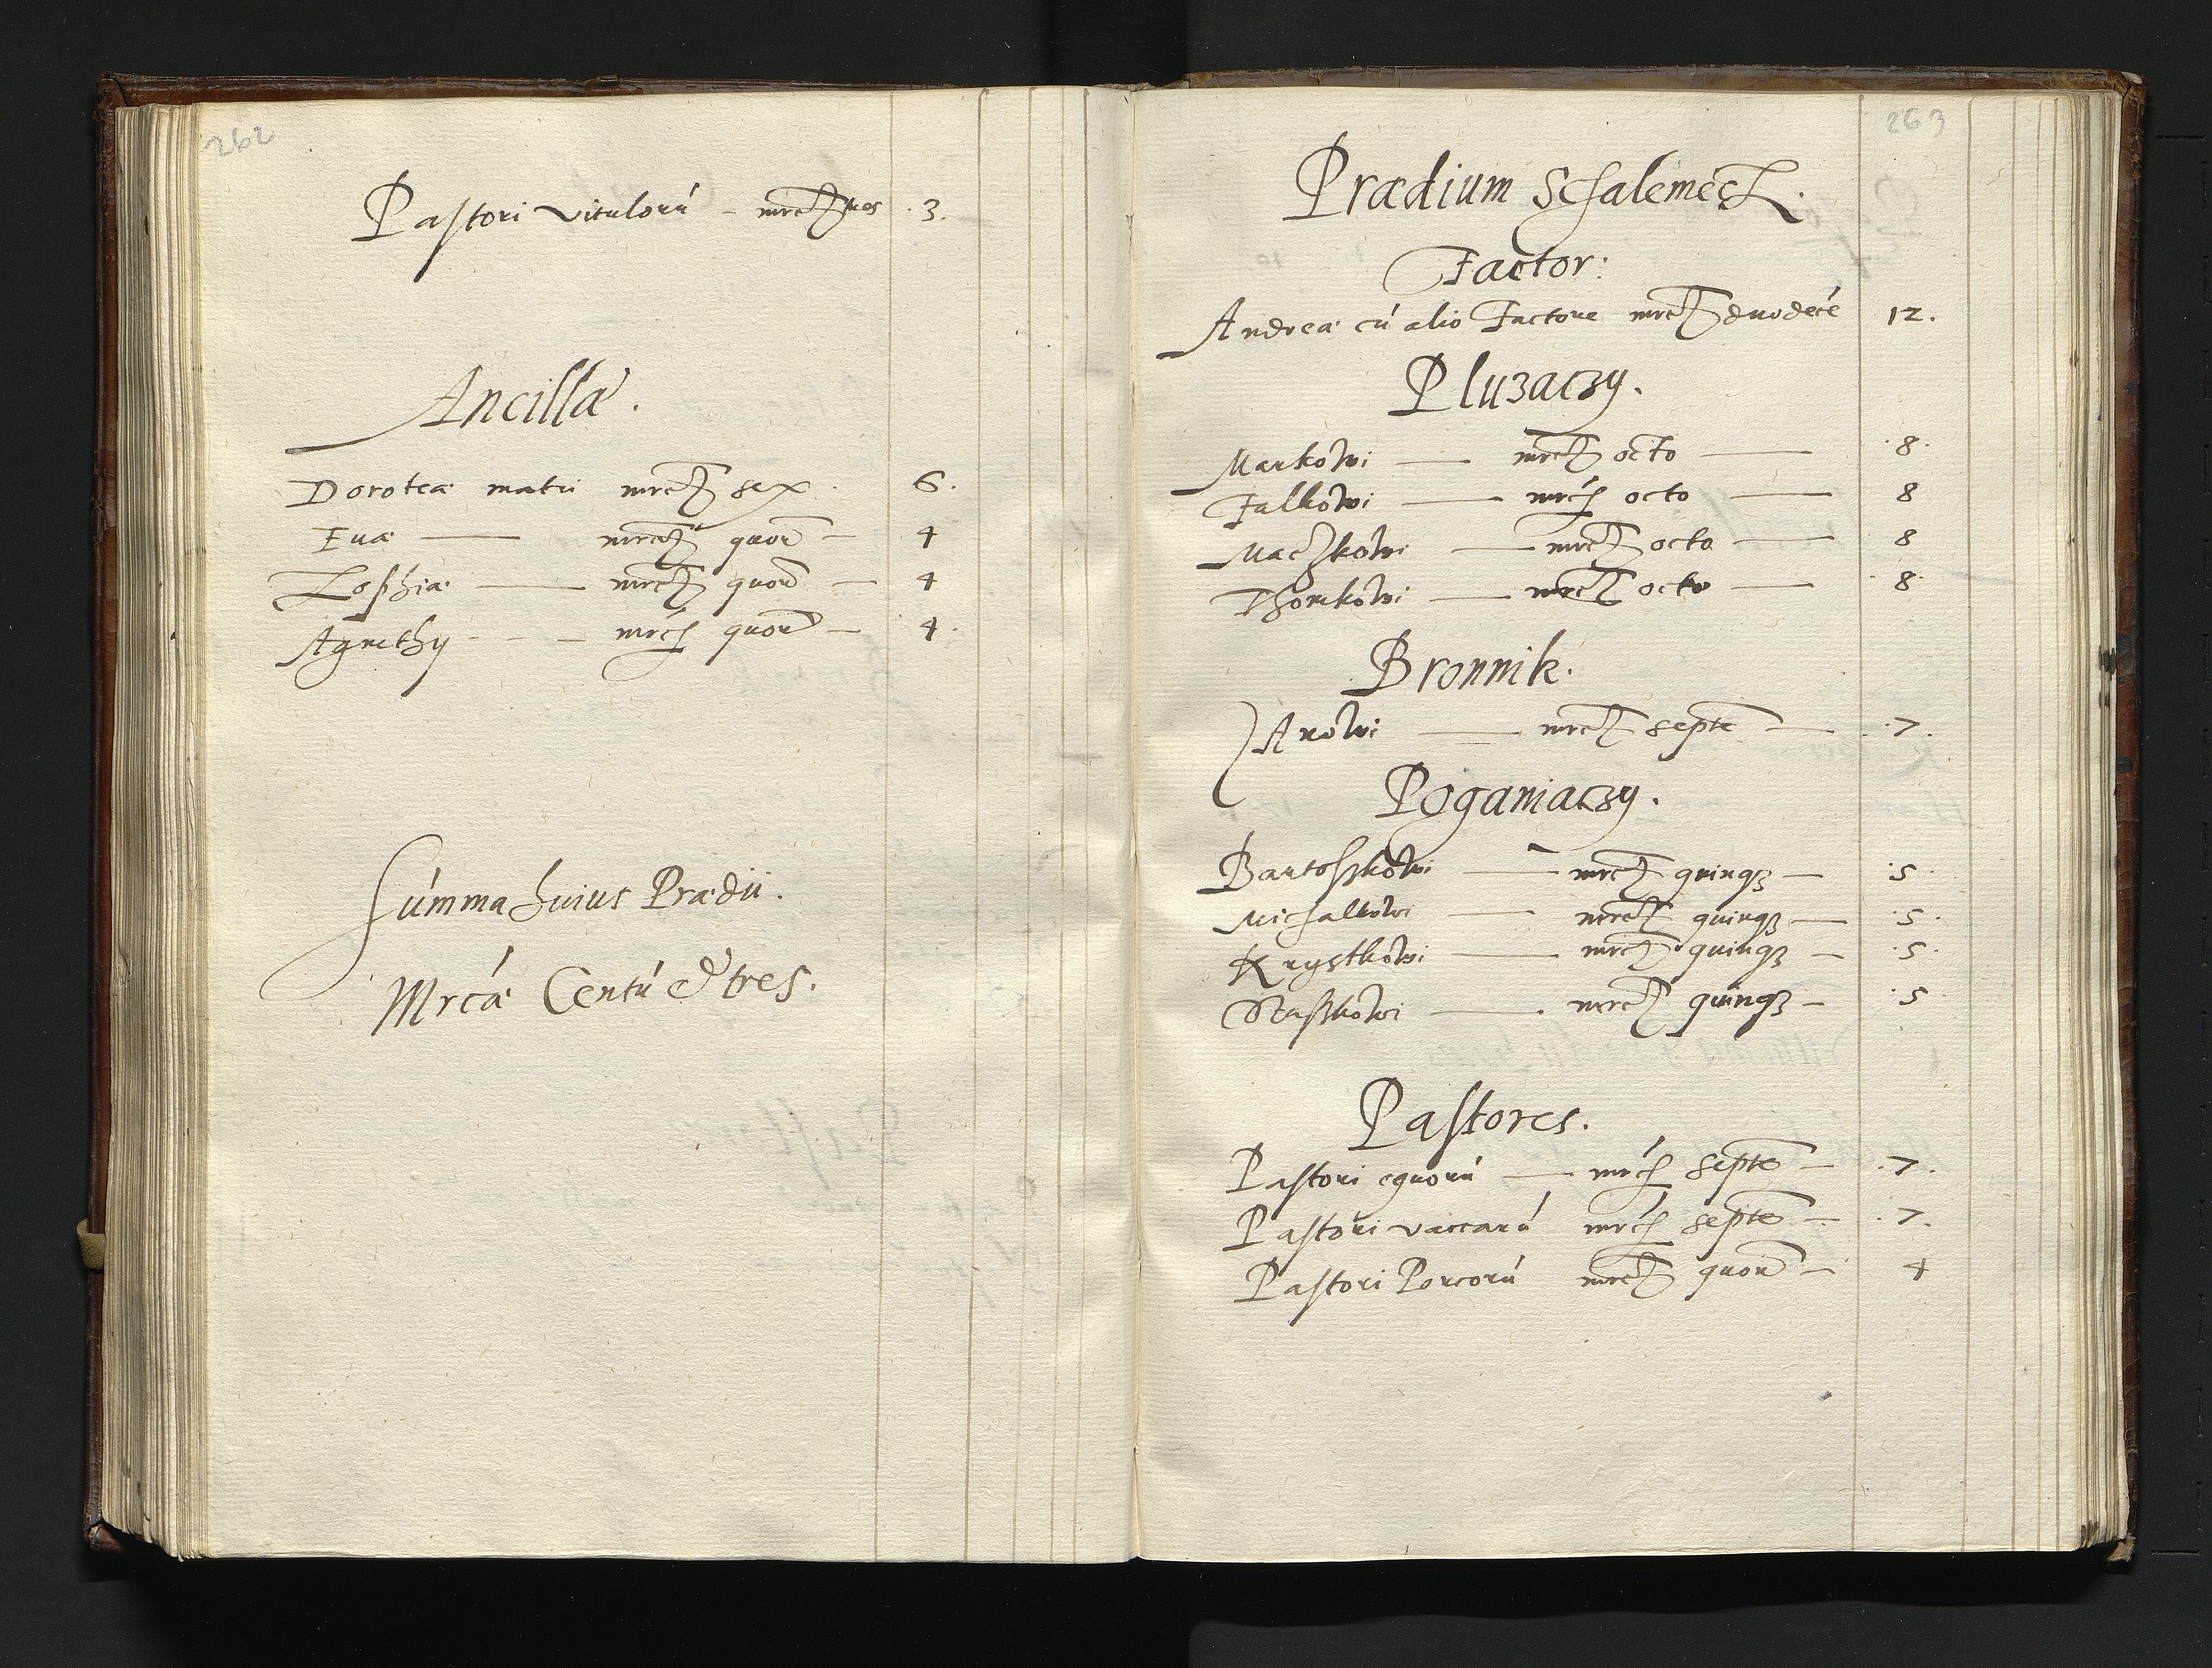 262
Pastori vitulorú - mrc̃ tres .3.
Ancillæ.
Doroteæ matri mrc̃ sex. 6.
Euæ — mrc̃ quor̃ — 4
Zophiæ — mrc̃ quor̃ — 4
Agnethy - - - mrc̃ quor̃ — 4.
Summa huius Prædii.
Mrcá Centú et tres.
263
Prædium Schalemech.
Factor:
Andreæ cú alio Factore mrc̃ duodecé 12.
Pluzaczy.
Markowi — mrc̃ octo — .8.
Falkowi — mrc̃ octo — 8
Maczkowi — mrc̃ octo — 8
Thomkowi — mrc̃ octo — .8.
Bronnik.
Jarowi — mrc̃ septẽ — .7.
Poganiaczy.
Bartoszkowi — mrc̃ quinqȝ — .5.
Michalkowi — mrc̃ quinqȝ — .5.
Krystkowi — mrc̃ quinqȝ — .5.
Staszkowi — mrc̃ quinqȝ — .5
Pastores.
Pastori equorú — mrc̃ septẽ — .7.
Pastori vaccarú mrc̃ septẽ — .7.
Pastori Porcorú mrc̃ quor̃ — 4